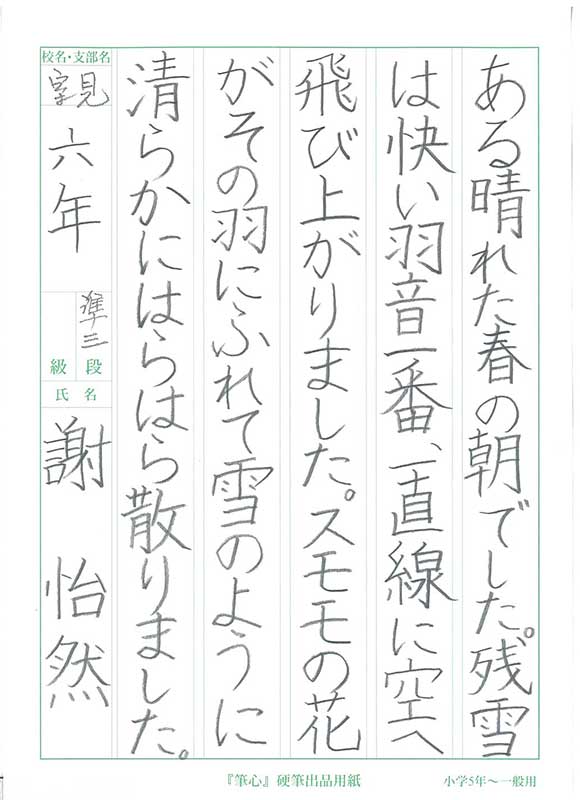 ある晴れた春の朝でした。残雪
は快い羽音一番、一直線に空へ
飛び上がりました。スモモの花
がその羽にふれて雪のように
清らかにはらはら散りました。
校名・支部名
室見
六年
準三
段
級
氏名
謝 怡然
『筆心』硬筆出品用紙
小学5年〜一般用